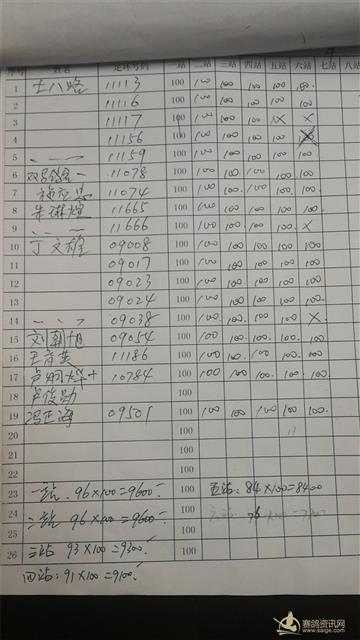 序号 姓名 足环号码 一站 二站 三站 四站 五站 六站 七站 八站
1 士八路 11113 100 100 100 100 100 100
2 11116 100 100 100 100 100 100
3 11117 100 100 100 100 × ×
4 11156 100 100 100 100 100
5 11159 100 100 100 100 100 100
6 11078 100 100 100 100 100 100
7 11074 100 100 100 100 100 100
8 朱琳煌 11665 100 100 100 100 100 100
9 11666 100 100 100 100 100 ×
10 丁文雄 09008 100 100 100 100 100 100
11 09017 100 100 100 100 100 100
12 09023 100 100 100 100 100 100
13 09024 100 100 100 100 100 100
14 09038 100 100 100 100 100 ×
15 刘朝旭 09054 100 100 100 100 100 100
16 11186 100 100 100 100 100 100
17 10784 100 100 100 100 100 100
18 卢俊勋 100
19 冯正海 09501 100 100 100 100 100 100
20 100
21 100
22 100
23 一站. 96×100=9600 100 五站: 84×100=8400
24 二站 96×100=9600 100 六站 76×100=7600
25 100
26 三站 93×100=9300 100
四站: 91×100=9100
赛鸽资讯网
www.saige.com